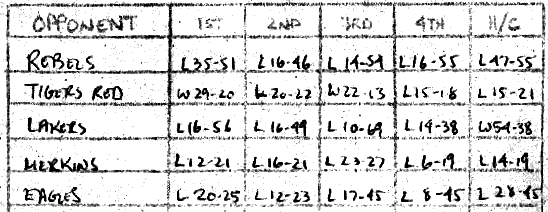 OPPONENT 1ST 2ND 3RD 4TH H/C
REBELS L35-51 L16-46 L14-54 L16-55 L47-55
TIGERS RED W29-20 L20-22 W22-13 L15-18 L15-21
LAKERS L16-56 L16-49 L10-69 L14-38 W54-38
MERKINS L12-21 L16-21 L23-27 L6-19 L14-19
EAGLES L20-25 L12-23 L17-45 L8-45 L28-45